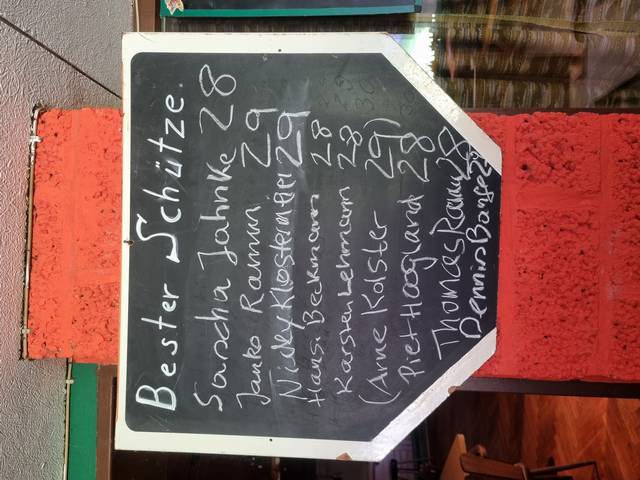 Bester Schütze.
Sascha Jahnke 28
Janko Ramm 29
Nicky Klostermeier 29
Hans. Beckmann 28
Karsten Lehmann 28
(Arne Kolster 29)
Piet Hoogland 28
Thomas Ramm 28
Dennis Bange